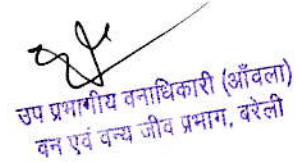 उप प्रभागीय वनाधिकारी (आँवला)
वन एवं वन्य जीव प्रभाग, बरेली